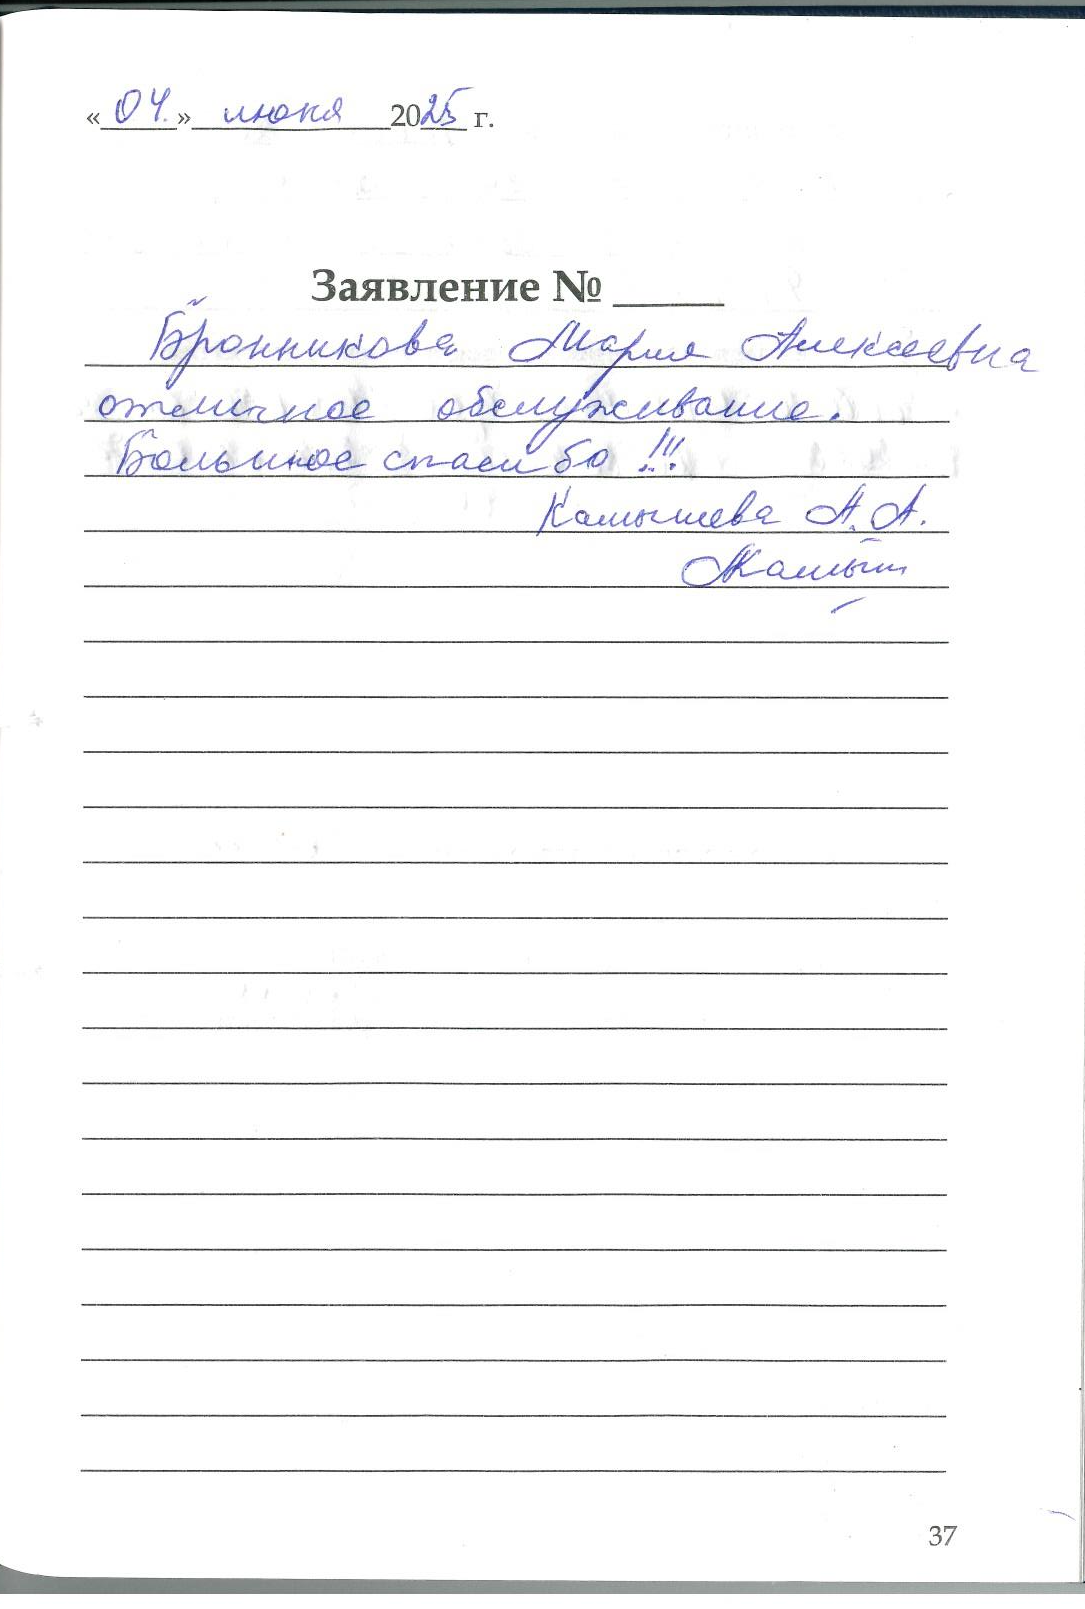 «04.» июня 2025 г.
Заявление № _____
Бронникова Мария Алексеевна
отличное обслуживание.
Большое спасибо !!!
Камышева А. А.
37